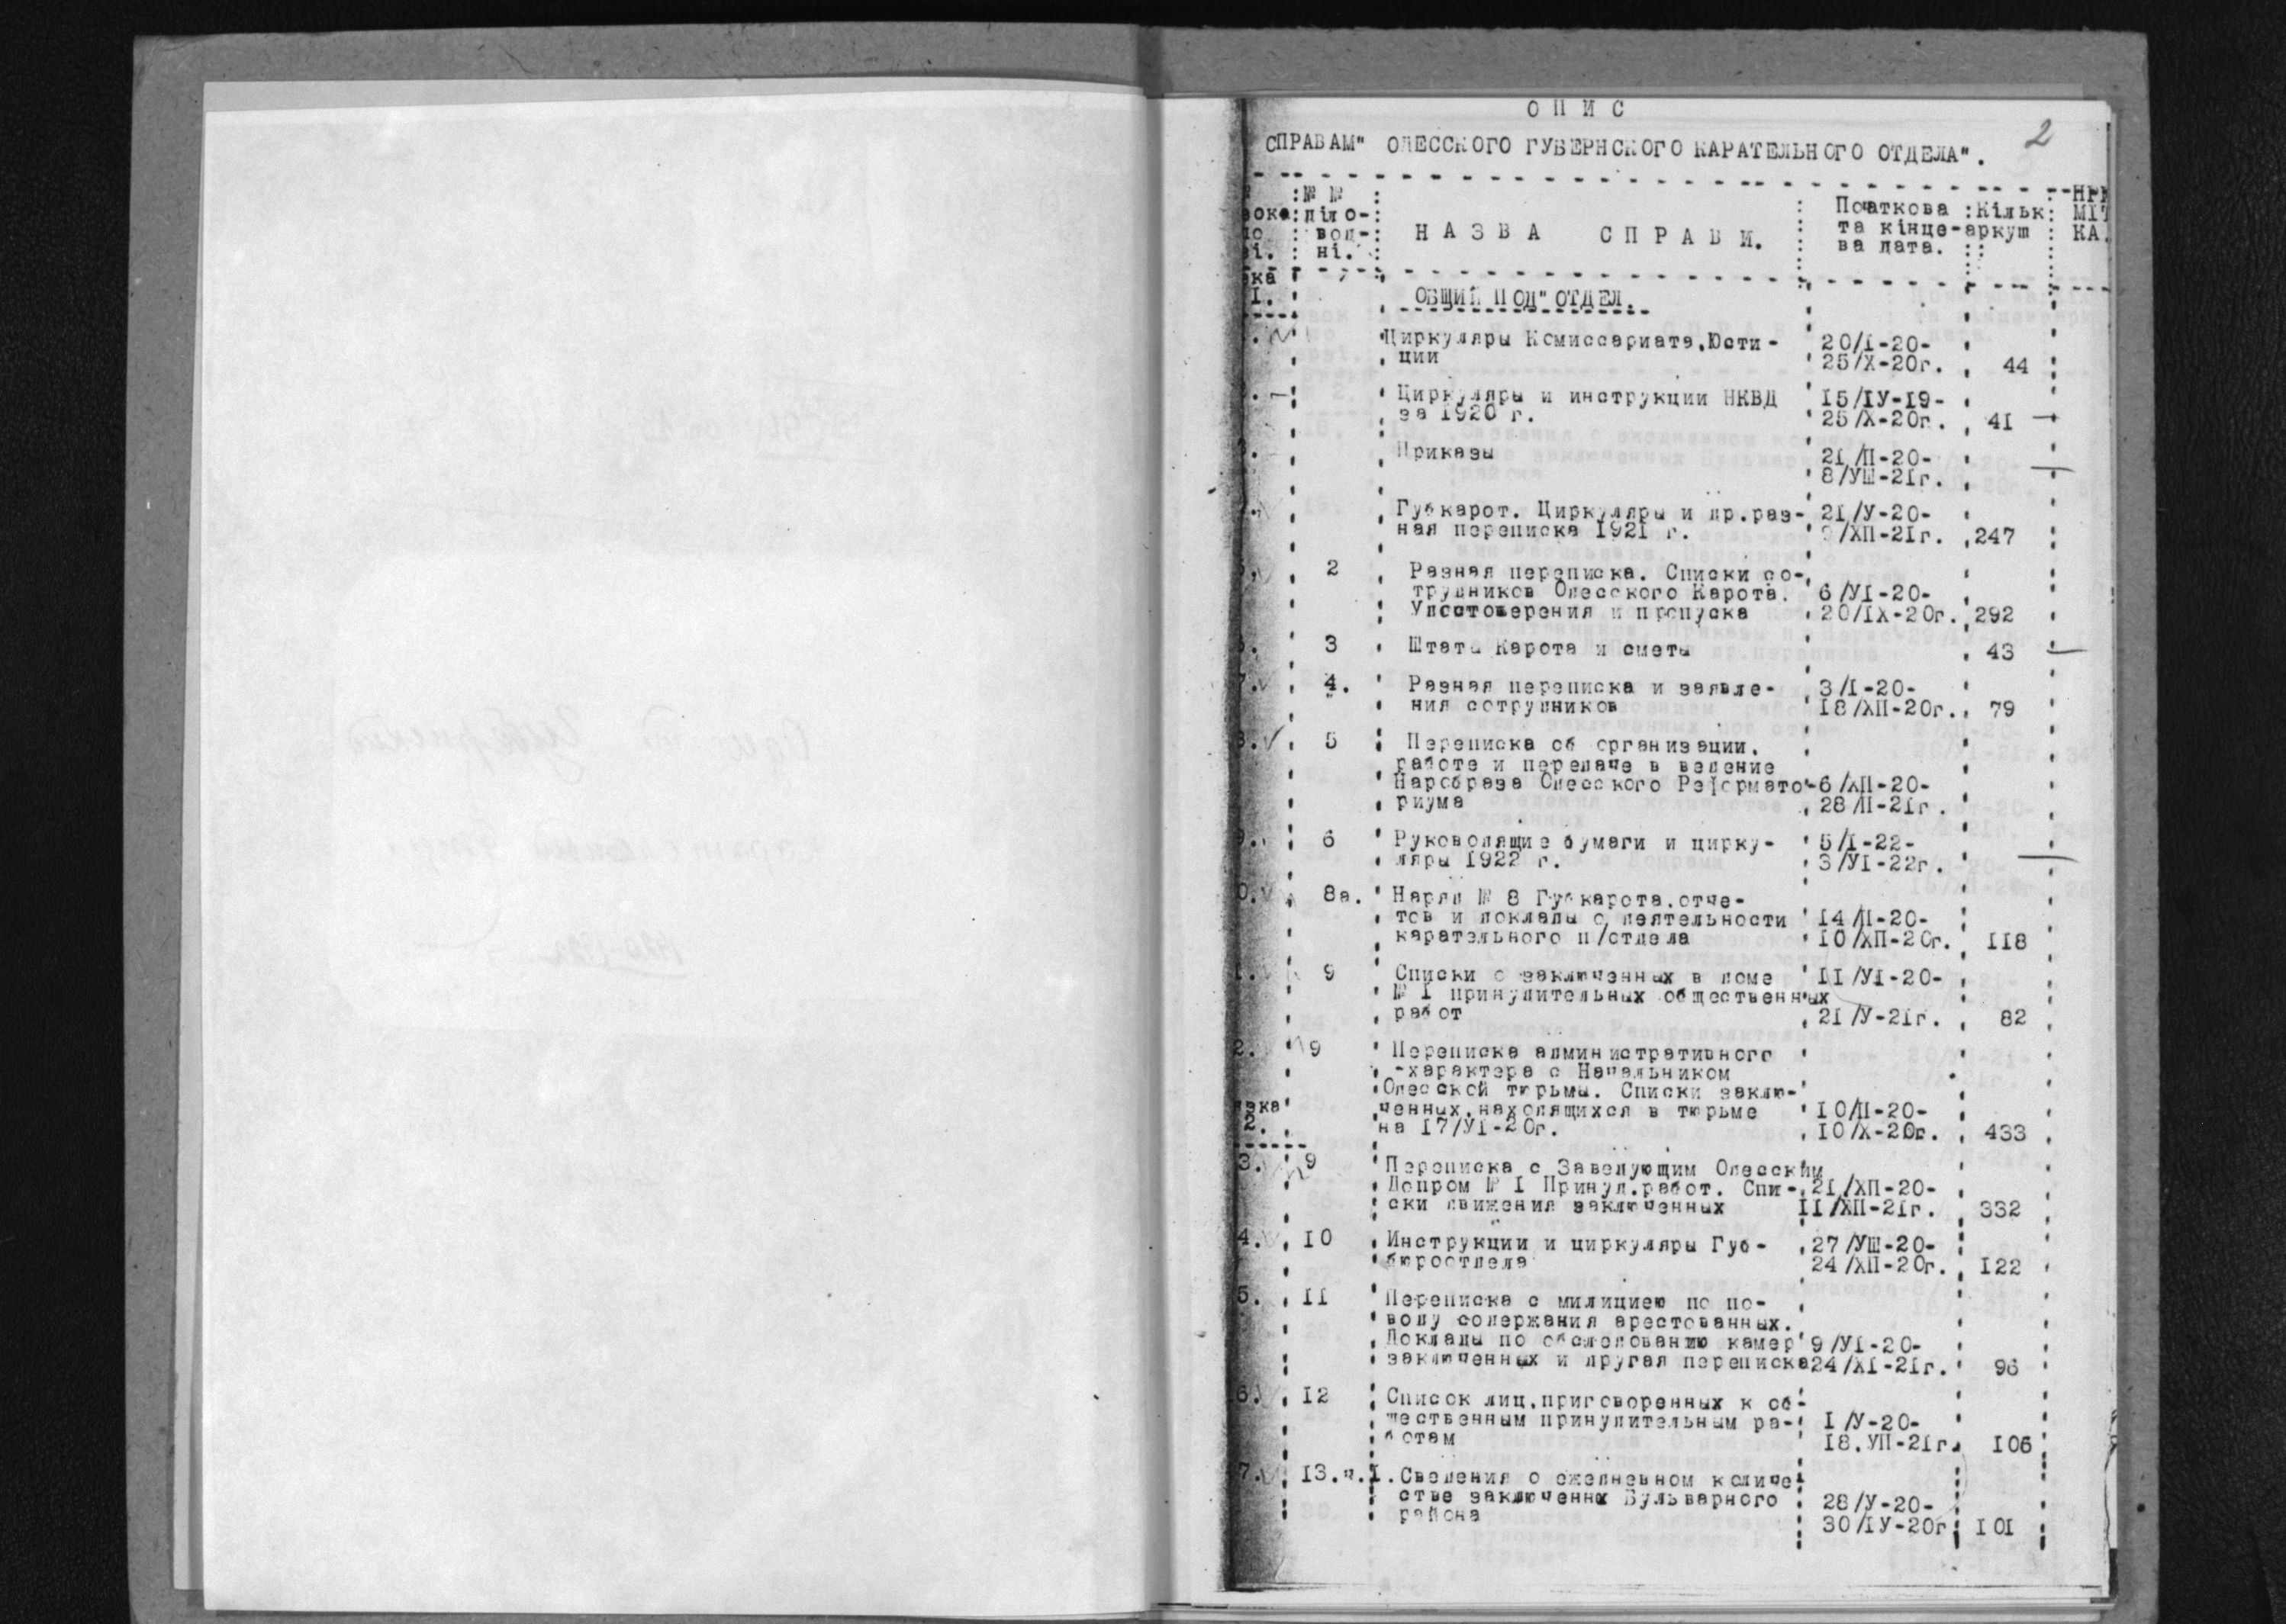 О П И С
2
СПРАВАМ" ОДЕССКОГО ГУБЕРНСКОГО КАРАТЕЛЬНОГО ОТДЕЛА".
№ №
діло-
вод-
ні.
Н А З В А С П Р А В И.
Початкова
та кінце-
ва дата.
Кільк
аркуш
I.
ОБЩИЙ ПОД"ОТДЕЛ.
Циркуляры Комиссариата,Юсти- 20/I-20-
ции 25/X-20г. 44
Циркуляры и инструкции НКВД 15/IУ-19-
за 1920 г. 25/X-20г. 41 —
Приказы 21/П-20-
8/УШ-21г. —
Губкарот. Циркуляры и др.раз- 21/У-20-
ная переписка 1921 г. 9/ХП-21г. 247
2 Разная переписка. Списки со-
трудников Одесского Карота. 6/УI-20-
Удостоверения и пропуска 20/IX-20г. 292
3 Штаты Карота и сметы 43 —
7. 4. Разная переписка и заявле- 3/I-20-
ния сотрудников 18/ХП-20г. 79
8. 5 Переписка об организации,
работе и передаче в ведение
Наробраза Одесского Реформато- 6/ХП-20-
риума 28/П-21г.
9. 6 Руководящие бумаги и цирку- 5/I-22-
ляры 1922 г. 3/УI-22г. —
0. 8а. Наряд № 8 Губкарота,отче-
тов и доклады о деятельности 14/П-20-
карательного п/отдела 10/ХП-20г. 118
1. 9 Списки о заключенных в доме 11/УI-20-
№ I принудительных общественных
работ 21/У-21г. 82
2. 9 Переписка административного
-характера с Начальником
Одесской тюрьмы. Списки заклю-
ченных,находящихся в тюрьме 10/П-20-
на 17/УI-20г. 10/X-20г. 433
2.
3. 9 Переписка с Заведующим Одесским
Допром № I Принуд.работ. Спи- 21/ХП-20-
ски движения заключенных II/ХП-21г. 332
4. 10 Инструкции и циркуляры Губ- 27/УШ-20-
бюроотдела 24/ХП-20г. 122
5. II Переписка с милициею по по-
воду содержания арестованных.
Доклады по обследованию камер 9/УI-20-
заключенных и другая переписка 24/XI-21г. 96
6. 12 Список лиц,приговоренных к об-
щественным принудительным ра- I/У-20-
ботам 18.УП-21г. 106
7. 13.ч.I. Сведения о ежедневном количе
стве заключенны Бульварного 28/У-20-
района 30/IУ-20г 101